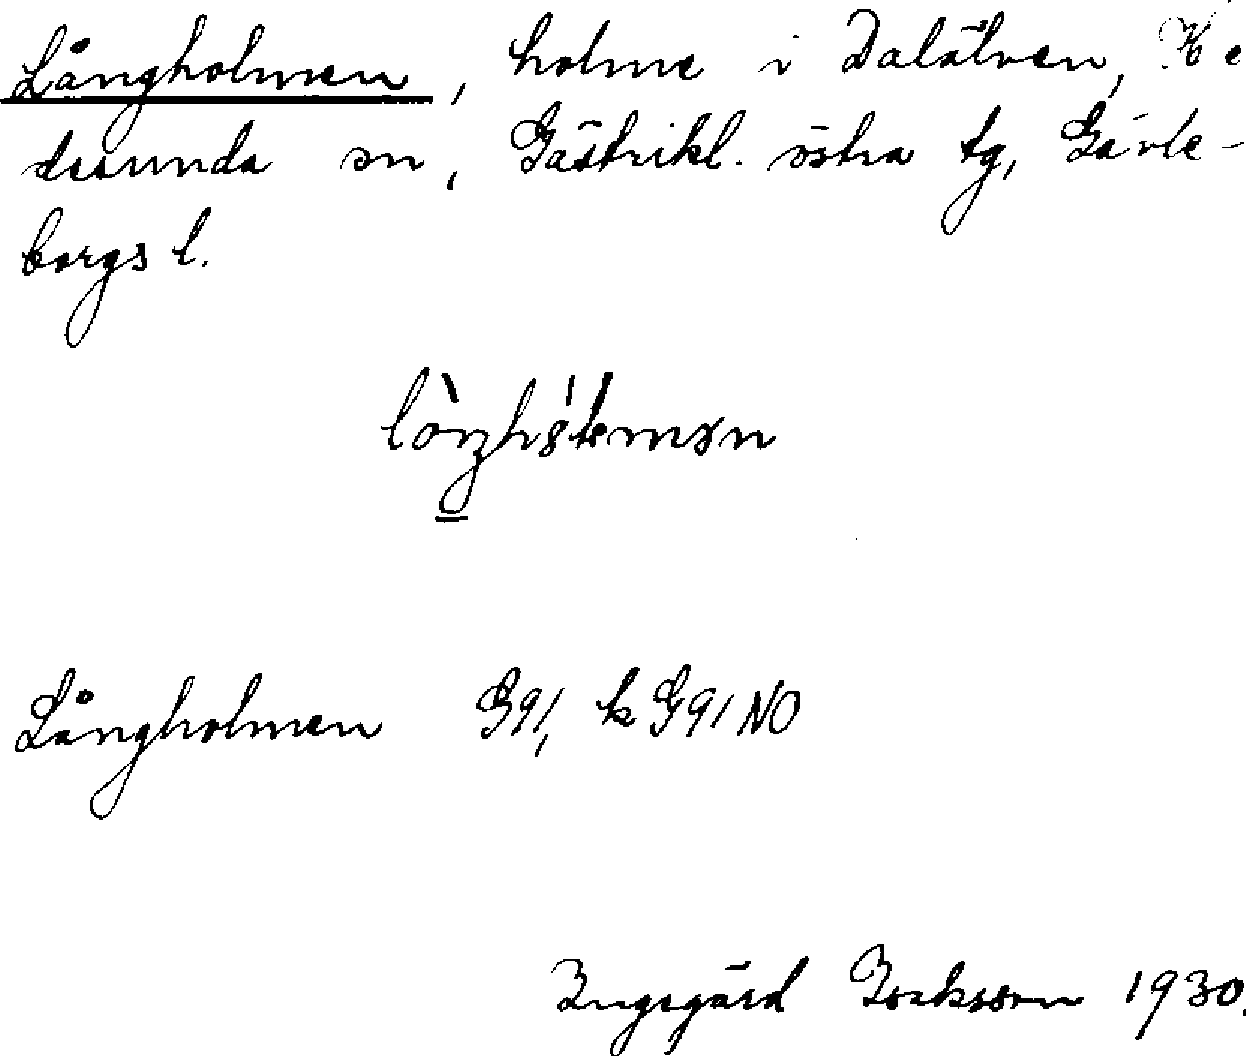 Långholmen, holme i Dalälven, He
desunda sn, Gästrikl. östra tg, Gävle-
borgs l.
Långholmen G91, k G91 NO
Ingegärd Isaksson 1930.